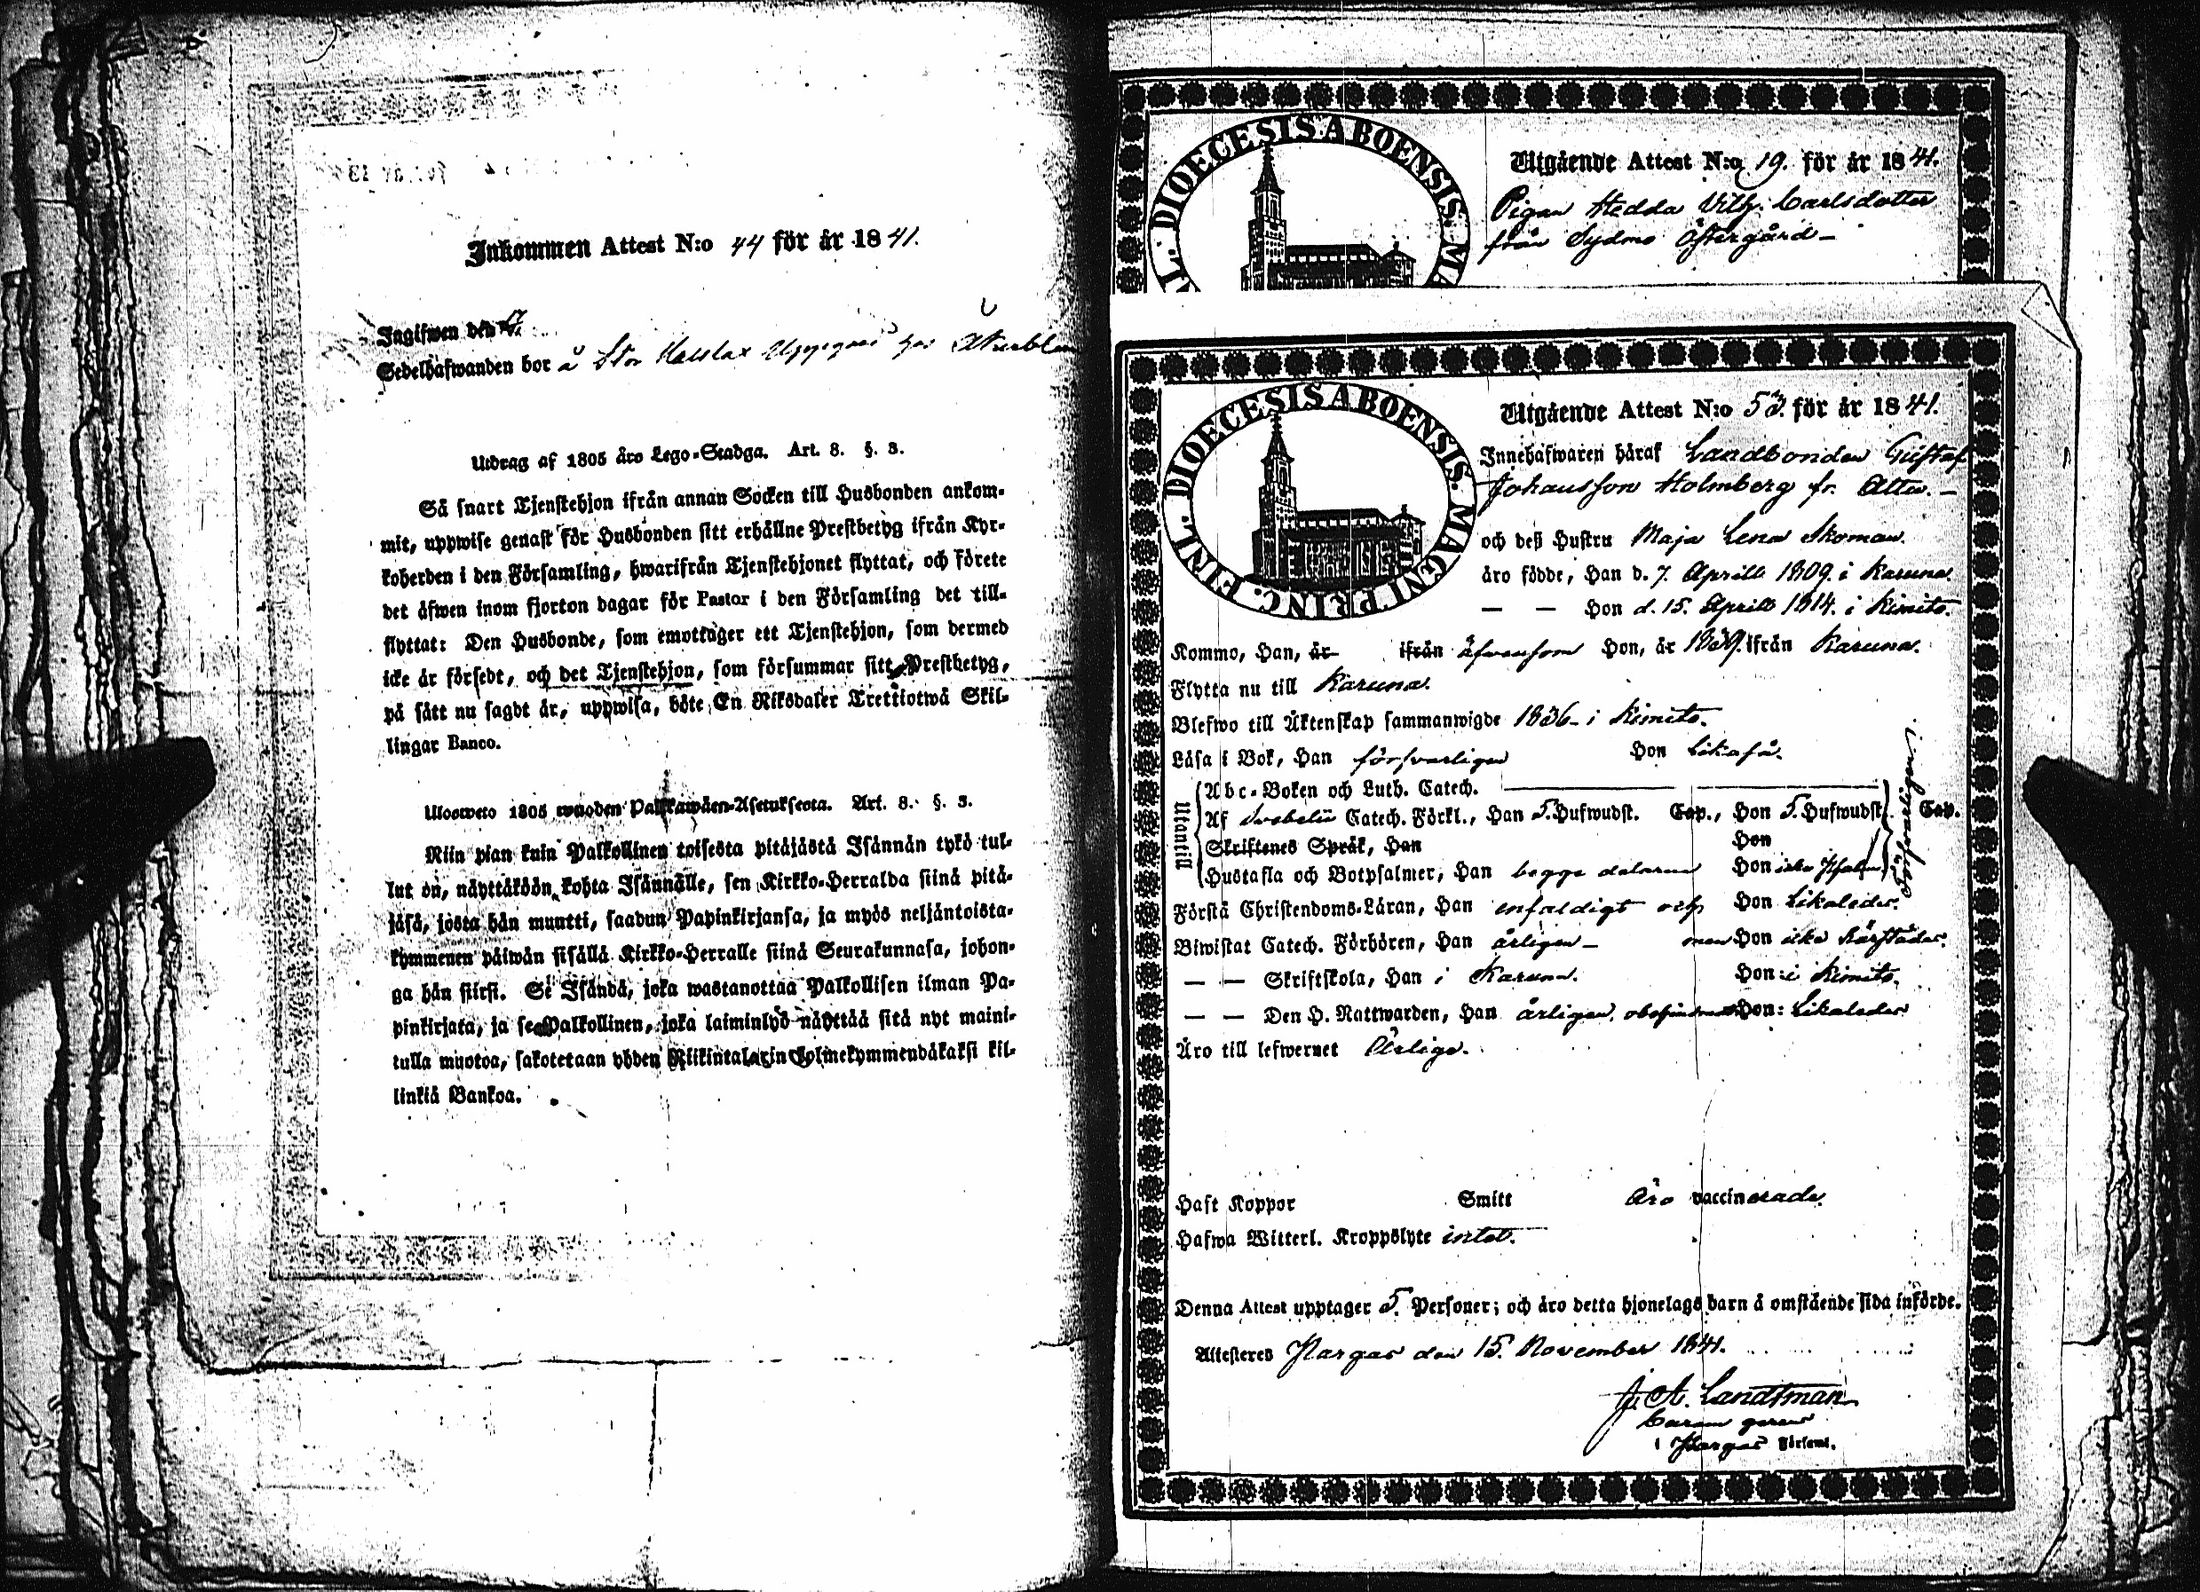 Inkommen Attest N:o 44 för år 1841.
Ingifwen den
Sedelhafwanden bor å Stor
Utdrag af 1805 års Lego-Stadga. Art. 8. §. 3.
Så snart Tjenstehjon ifrån annan Socken till Husbonden ankom-
mit, uppwise genast för Husbonden sitt erhållne Prestbetyg ifrån Kyr-
koherden i den Församling, hwarifrån Tjenstehjonet flyttat, och förete
det äfwen inom fjorton dagar för Pastor i den Församling det till-
flyttat: Den Husbonde, som emottager ett Tjenstehjon, som dermed
icke är försedt, och det Tjenstehjon, som försummar sitt Prestbetyg,
på sätt nu sagdt är, uppwisa, böte En Riksdaler Trettiotwå Skil-
lingar Banco.
Ulosweto 1805 wuoden Palkkawäen-Asetuksesta. Art. 8. §. 3.
Niin pian kuin Palkollinen toisesta pitäjästä Isännän tykö tul-
lut on, näyttäköön kohta Isännälle, sen Kirkko-Herralda siinä pitä-
jäsä, josta hän muutti, saadun Papinkirjansa, ja myös neljäntoista-
kymmenen päiwän sisällä Kirkko-Herralle siinä Seurakunnasa, johon-
ga hän siirsi. Se Isändä, joka wastanottaa Palkollisen ilman Pa-
pinkirjata, ja se Palkollinen, joka laiminlyö näyttää sitä nyt maini-
tulla muotoa, sakotetaan yhden Riikintalarin kolmekymmendäkaksi kil-
linkiä Bankoa.
DIOECESIS ABOENSIS. MA
Utgående Attest N:o 19. för år 1841.
Pigan Hedda Vilh. Carlsdotter
från Sydmo Östergård –
DIOECESIS ABOENSIS. MAGNI PRINC. FINL.
Utgående Attest N:o 53. för år 1841.
Innehafwaren häraf Landbonden Gustaf
Johansson Holmberg fr. Attu. –
och deß Hustru Maja Lena Skoman.
äro födde, Han d. 7. Aprill 1809. i Karuna.
— — Hon d. 15. Aprill 1814. i Kimito.
Kommo, Han, år ifrån äfvensom Hon, år 1839. ifrån Karuna.
Flytta nu till Karuna.
Blefwo till Äktenskap sammanwigde 1836 – i Kimito.
Läsa i Bok, Han försvarligen Hon Likaså.
Utantill
Abc-Boken och Luth. Catech.
Af Svebelii Catech. Förkl., Han 5. Hufwudst. Cap., Hon 5. Hufwudst. Cap.
Skriftenes Språk, Han Hon
Hustafla och Botpsalmer, Han begge delarne Hon icke Psalm.
Förstå Christendoms-Läran, Han enfaldigt och Hon Likaledes.
Biwistat Catech. Förhören, Han årligen – men Hon icke härstädes.
— — Skriftskola, Han i Karuna. Hon: i Kimito.
— — Den H. Nattwarden, Han årligen, Hon: Likaledes
Äro till lefwernet Ärlige.
Haft Koppor Smitt Äro vaccinerade.
Hafwa Witterl. Kroppslyte intet.
Denna Attest upptager 5. Personer; och äro detta hjonelags barn å omstående sida införde.
Attesteres Pargas den 15. November 1841.
J. A. Landtman
Curam gerens
i Pargas Församl.